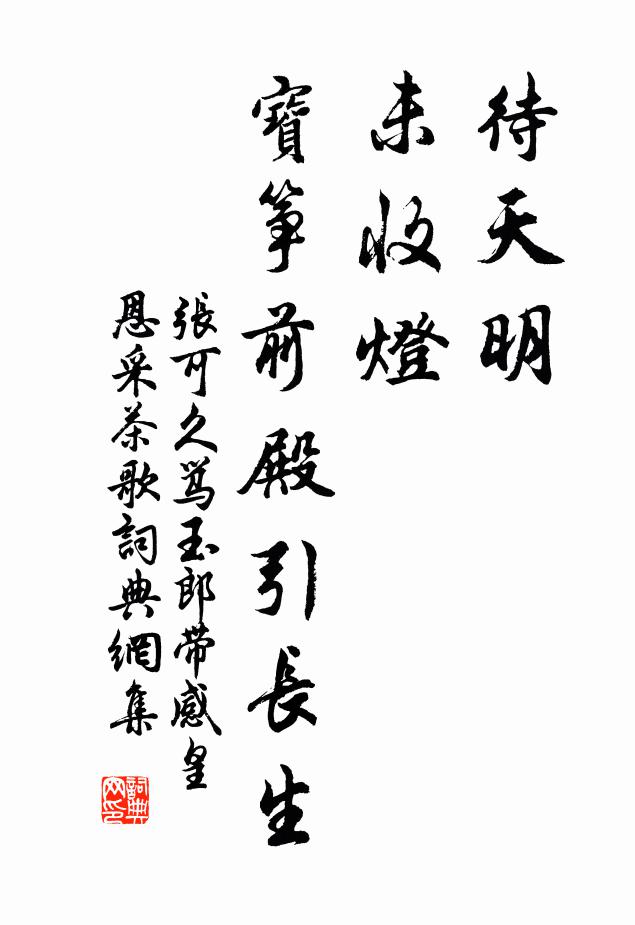 待天明
未收燈
寶箏前殿引長生
張可久罵玉郎帶感皇
恩采茶歌詞典網集
詞典网印